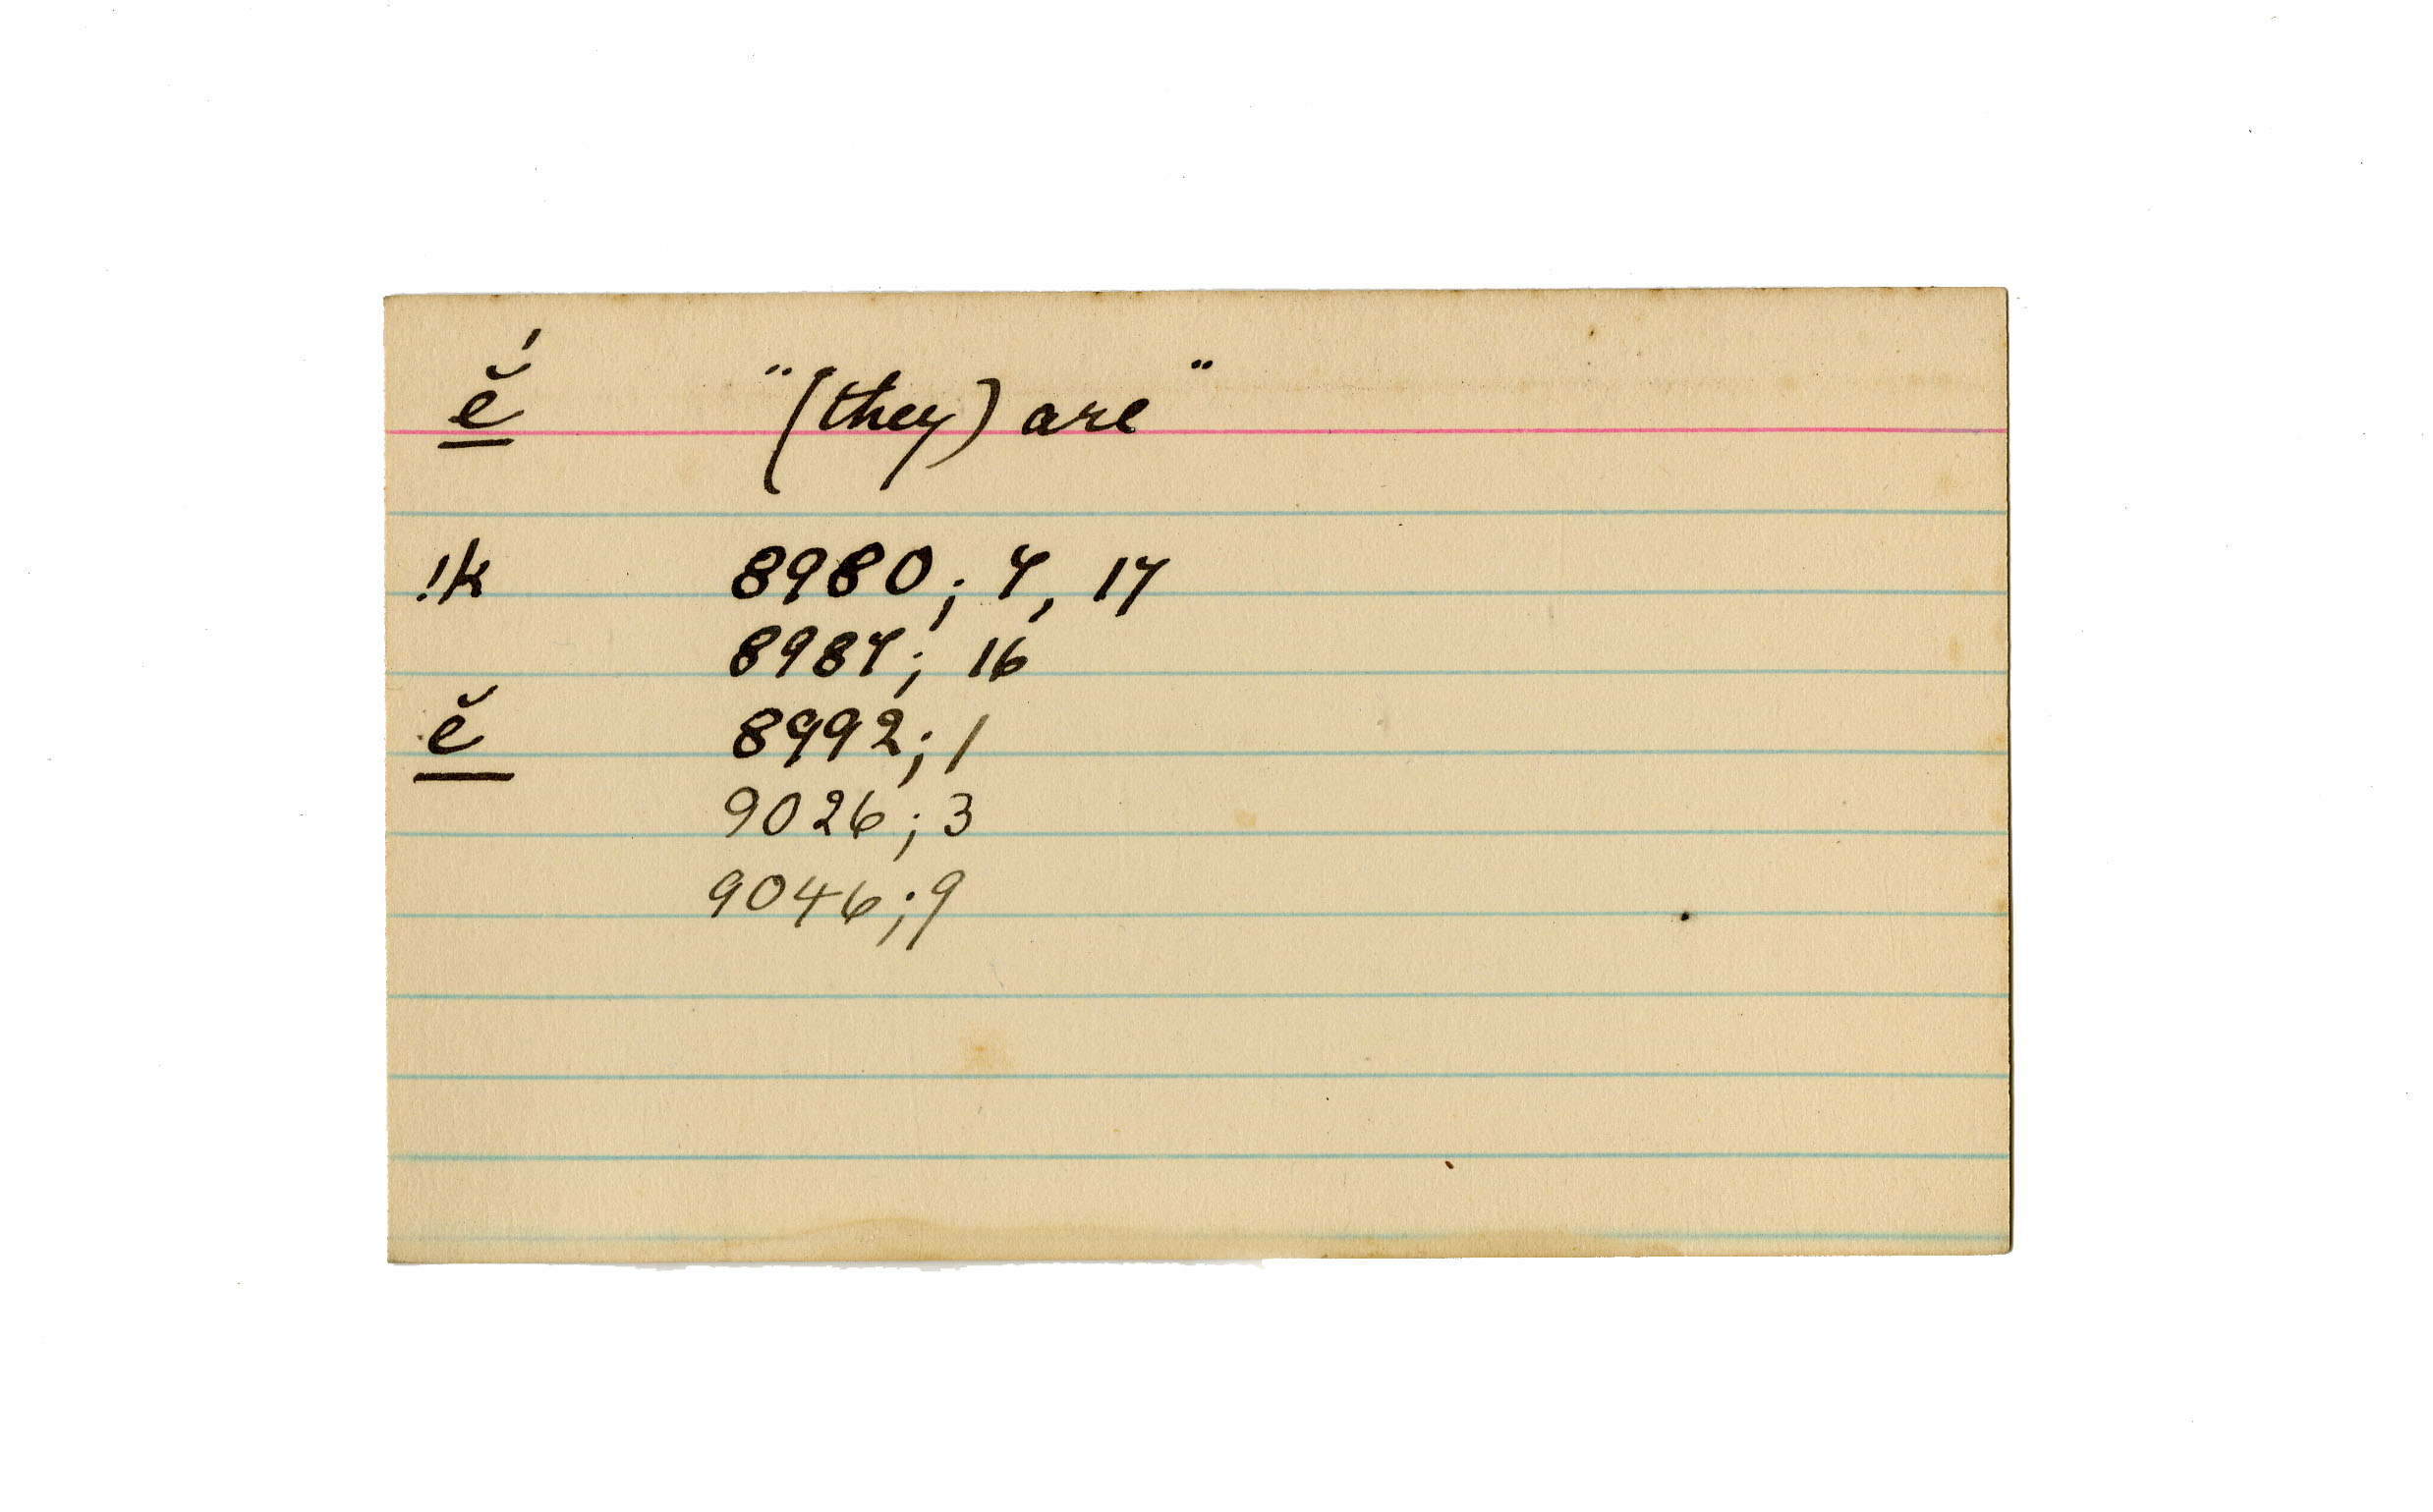 ĕ́ "(they) are"
!k 8980; 7, 17
8987; 16
ĕ 8992; 1
9026; 3
9046; 9